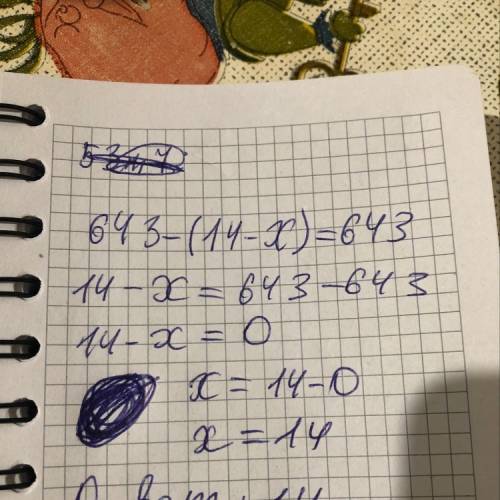 643-(14-x)=643
14-x=643-643
14-x=0
x=14-0
x=14